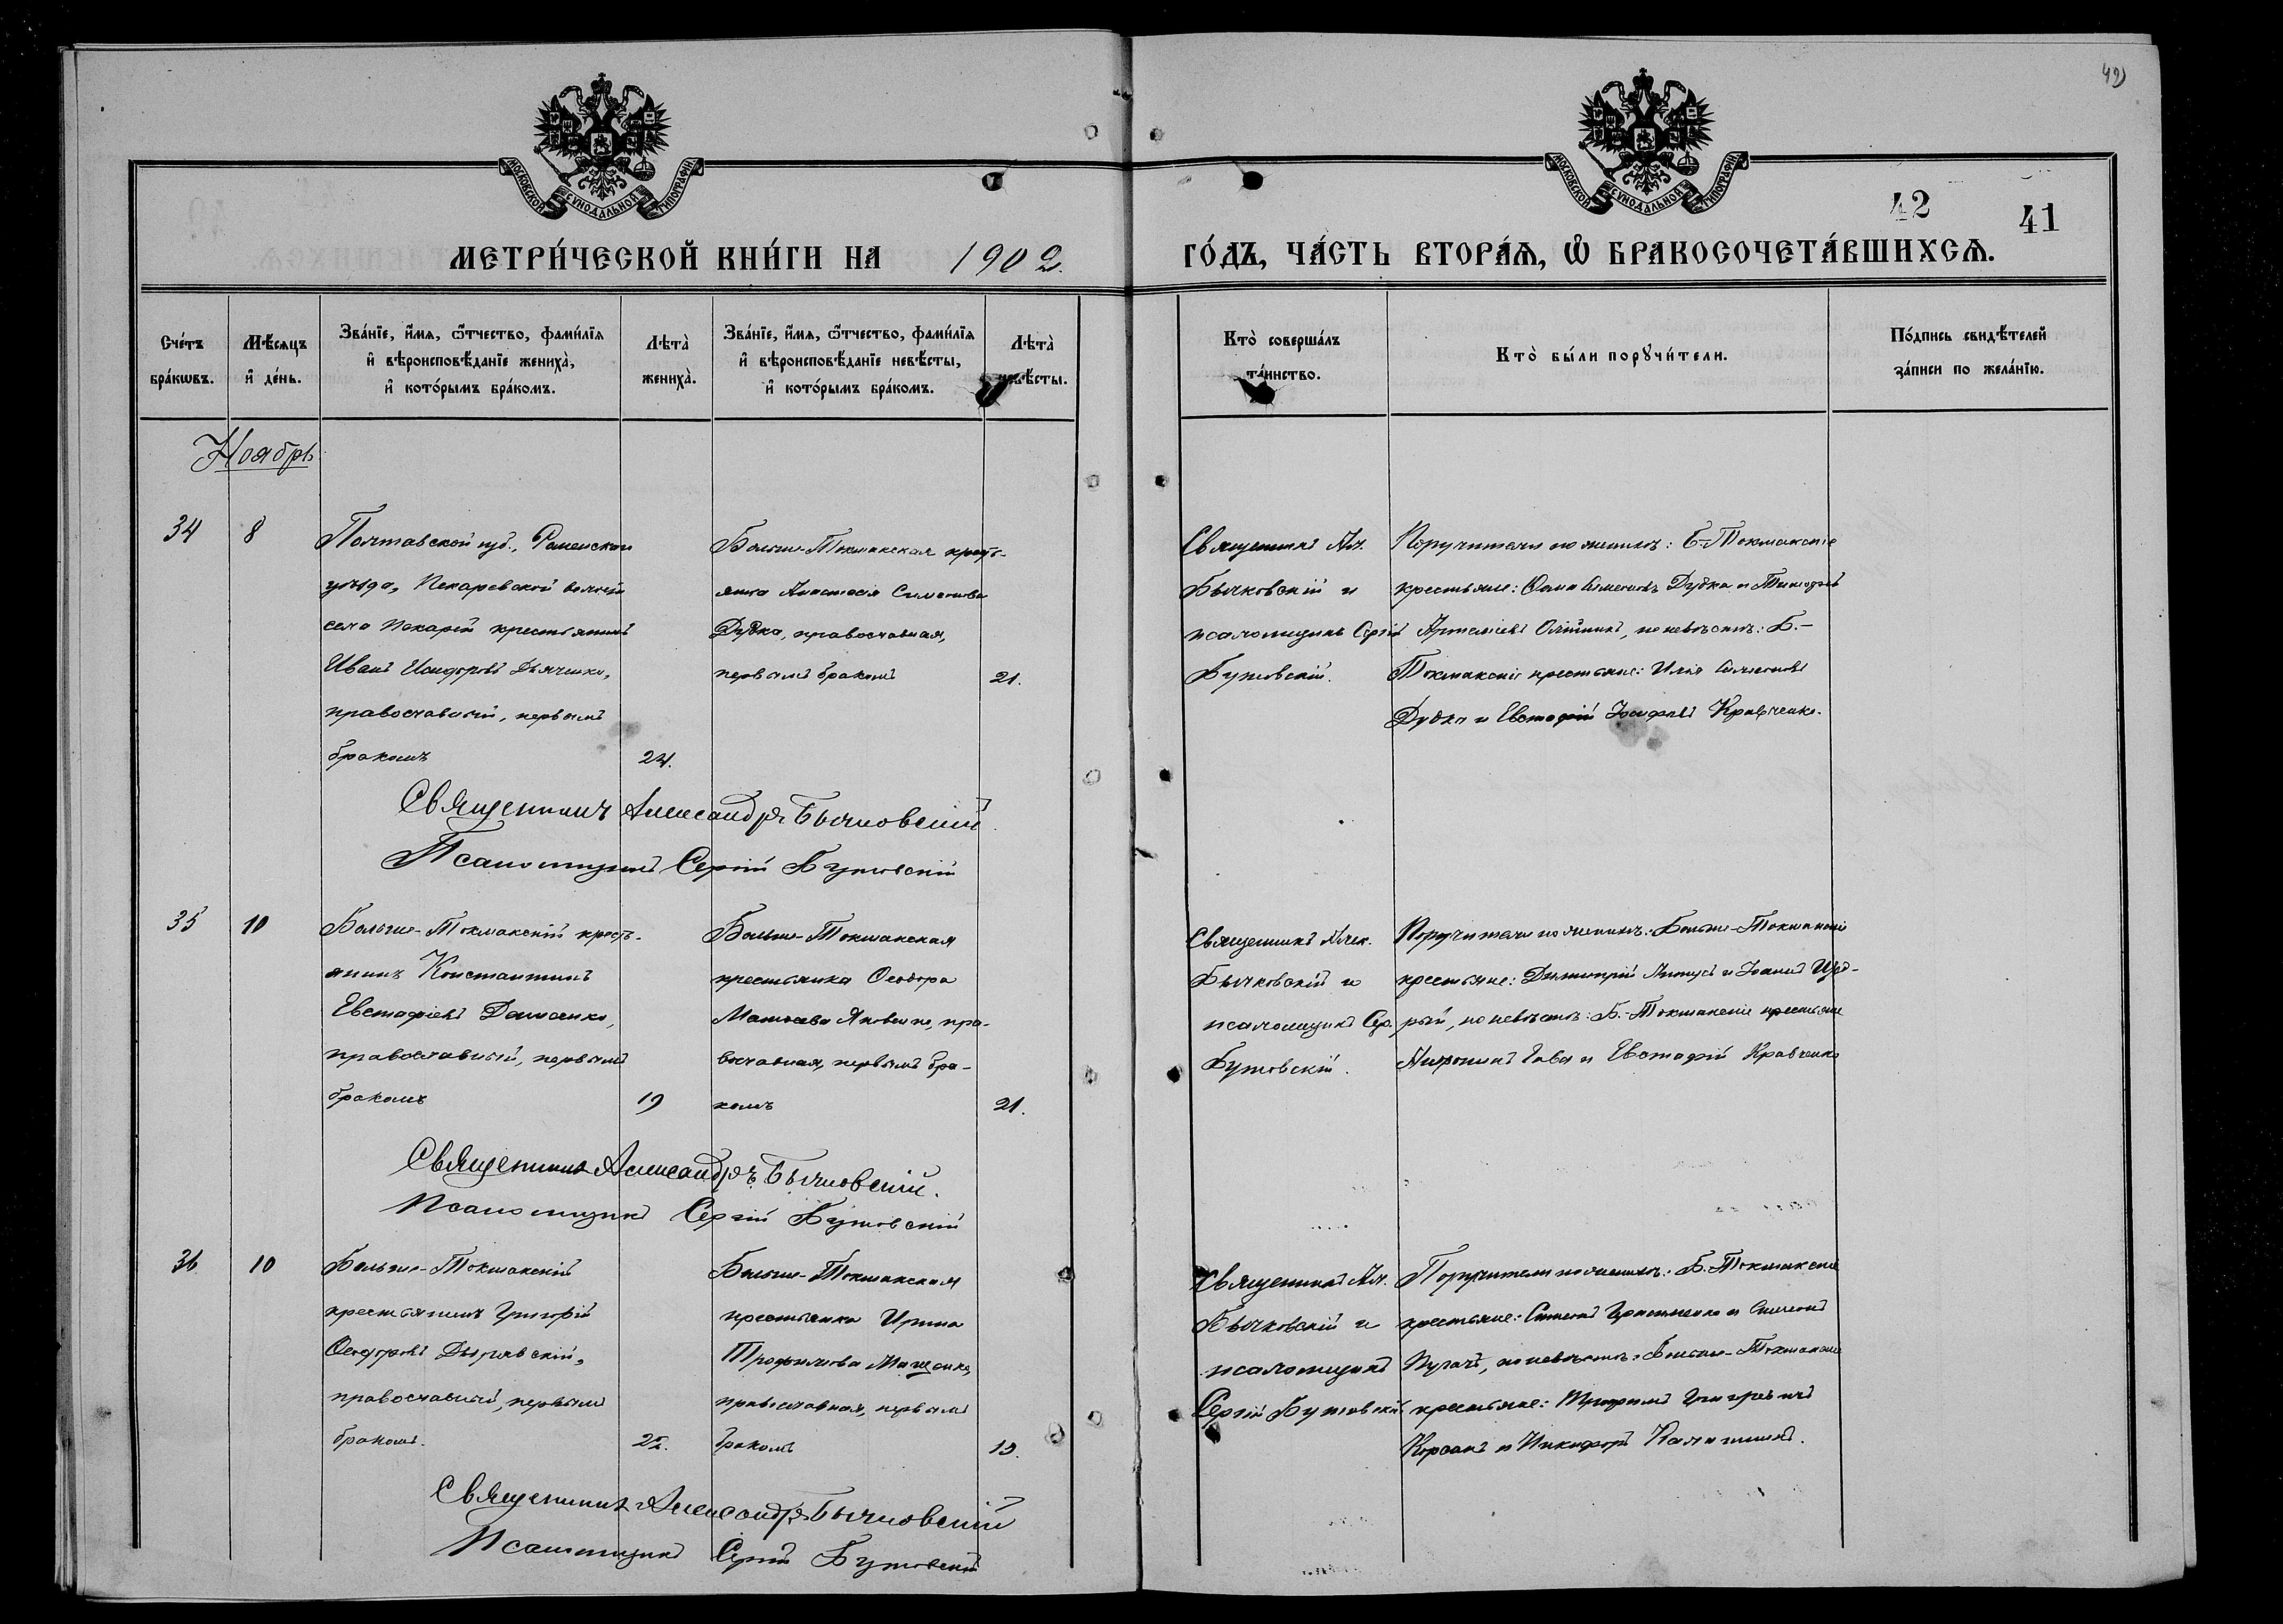 42
МОСКОВСКОЙ СУНОДАЛЬНОЙ ТИПОГРАФІИ
МОСКОВСКОЙ СУНОДАЛЬНОЙ ТИПОГРАФІИ
42 41
МЕТРИ́ЧЕСКОЙ КНИ́ГИ НА 1902.
ГО́ДЪ, ЧА́СТЬ ВТОРА́Ѧ, Ѽ БРАКОСОЧЕТА́ВШИХСѦ.
Сче́тъ бра́кѡвъ.
Мѣ́сяцъ и҆ де́нь.
Зва́нїе, и҆́мя, ѻ҆́тчество, фами́лїя
и҆ вѣроисповѣ́данїе жениха̀,
и҆ кото́рымъ бра́комъ.
Лѣта̀ жениха̀.
Зва́нїе, и҆́мя, ѻ҆́тчество, фами́лїя
и҆ вѣроисповѣ́данїе невѣ́сты,
и҆ кото́рымъ бра́комъ.
Лѣта̀ невѣ́сты.
Кто̀ соверша́лъ
та́инство.
Кто̀ бы́ли порꙋчи́тели.
По́дпись свидѣ́телей
за́писи по жела́нїю.
Ноябрь
34
8
Полтавской губ., Роменскаго
уѣзда, Пекаревской волости
села Пекарей крестьянинъ
Иванъ Исидоровъ Дьяченко,
православный, первымъ
бракомъ
24.
Больше-Токмакская кресть-
янка Анастасія Симеонова
Дубка, православная,
первымъ бракомъ
21.
Священникъ Ал.
Бычковскій и
псаломщикъ Сергій
Бутовскій.
Поручители по женихѣ: Б-Токмакскіе
крестьяне: Симеоновъ Дубка и Тимофей
Артеміевъ Олійникъ, по невѣстѣ: Б.-
Токмакскіе крестьяне: Илія Симеоновъ
Дубка и Евстафій Іосифовъ Кравченко.
Священникъ Александръ Бычковскій.
Псаломщикъ Сергій Бутовскій
35
10
Больше-Токмакскій кресть-
янинъ Константинъ
Евстафіевъ Даценко,
православный, первымъ
бракомъ
19
Больше-Токмакская
крестьянка Ѳеодора
Матѳеева Яковенко, пра-
вославная, первымъ бра-
комъ
21.
Священникъ Алек.
Бычковскій и
псаломщикъ Сер.
Бутовскій.
Поручители по женихѣ: Больше-Токмакскіе
крестьяне: Димитрій и Іоаннъ
по невѣстѣ: Б.-Токмакскіе крестьяне
и Евстафій Кравченко
Священникъ Александръ Бычковскій.
Псаломщикъ Сергій Бутовскій
36
10
Больше-Токмакскій
крестьянинъ Григорій
Ѳеодоровъ
православный, первымъ
бракомъ.
Больше-Токмакская
крестьянка Ирина
Трофимова Мащенко,
православная, первымъ
бракомъ
19.
Священникъ Ал.
Бычковскій и
псаломщикъ
Сергій Бутовскій
Поручители по женихѣ: Б.-Токмакскіе
крестьяне: Симеонъ Герасименко и Симеонъ
Пугачъ, по невѣстѣ: Больше-Токмакскіе
крестьяне: Трофимъ Григорьевичъ
Корсанъ и Никифоръ Калашникъ.
Священникъ Александръ Бычковскій
Псаломщикъ Сергій Бутовскій